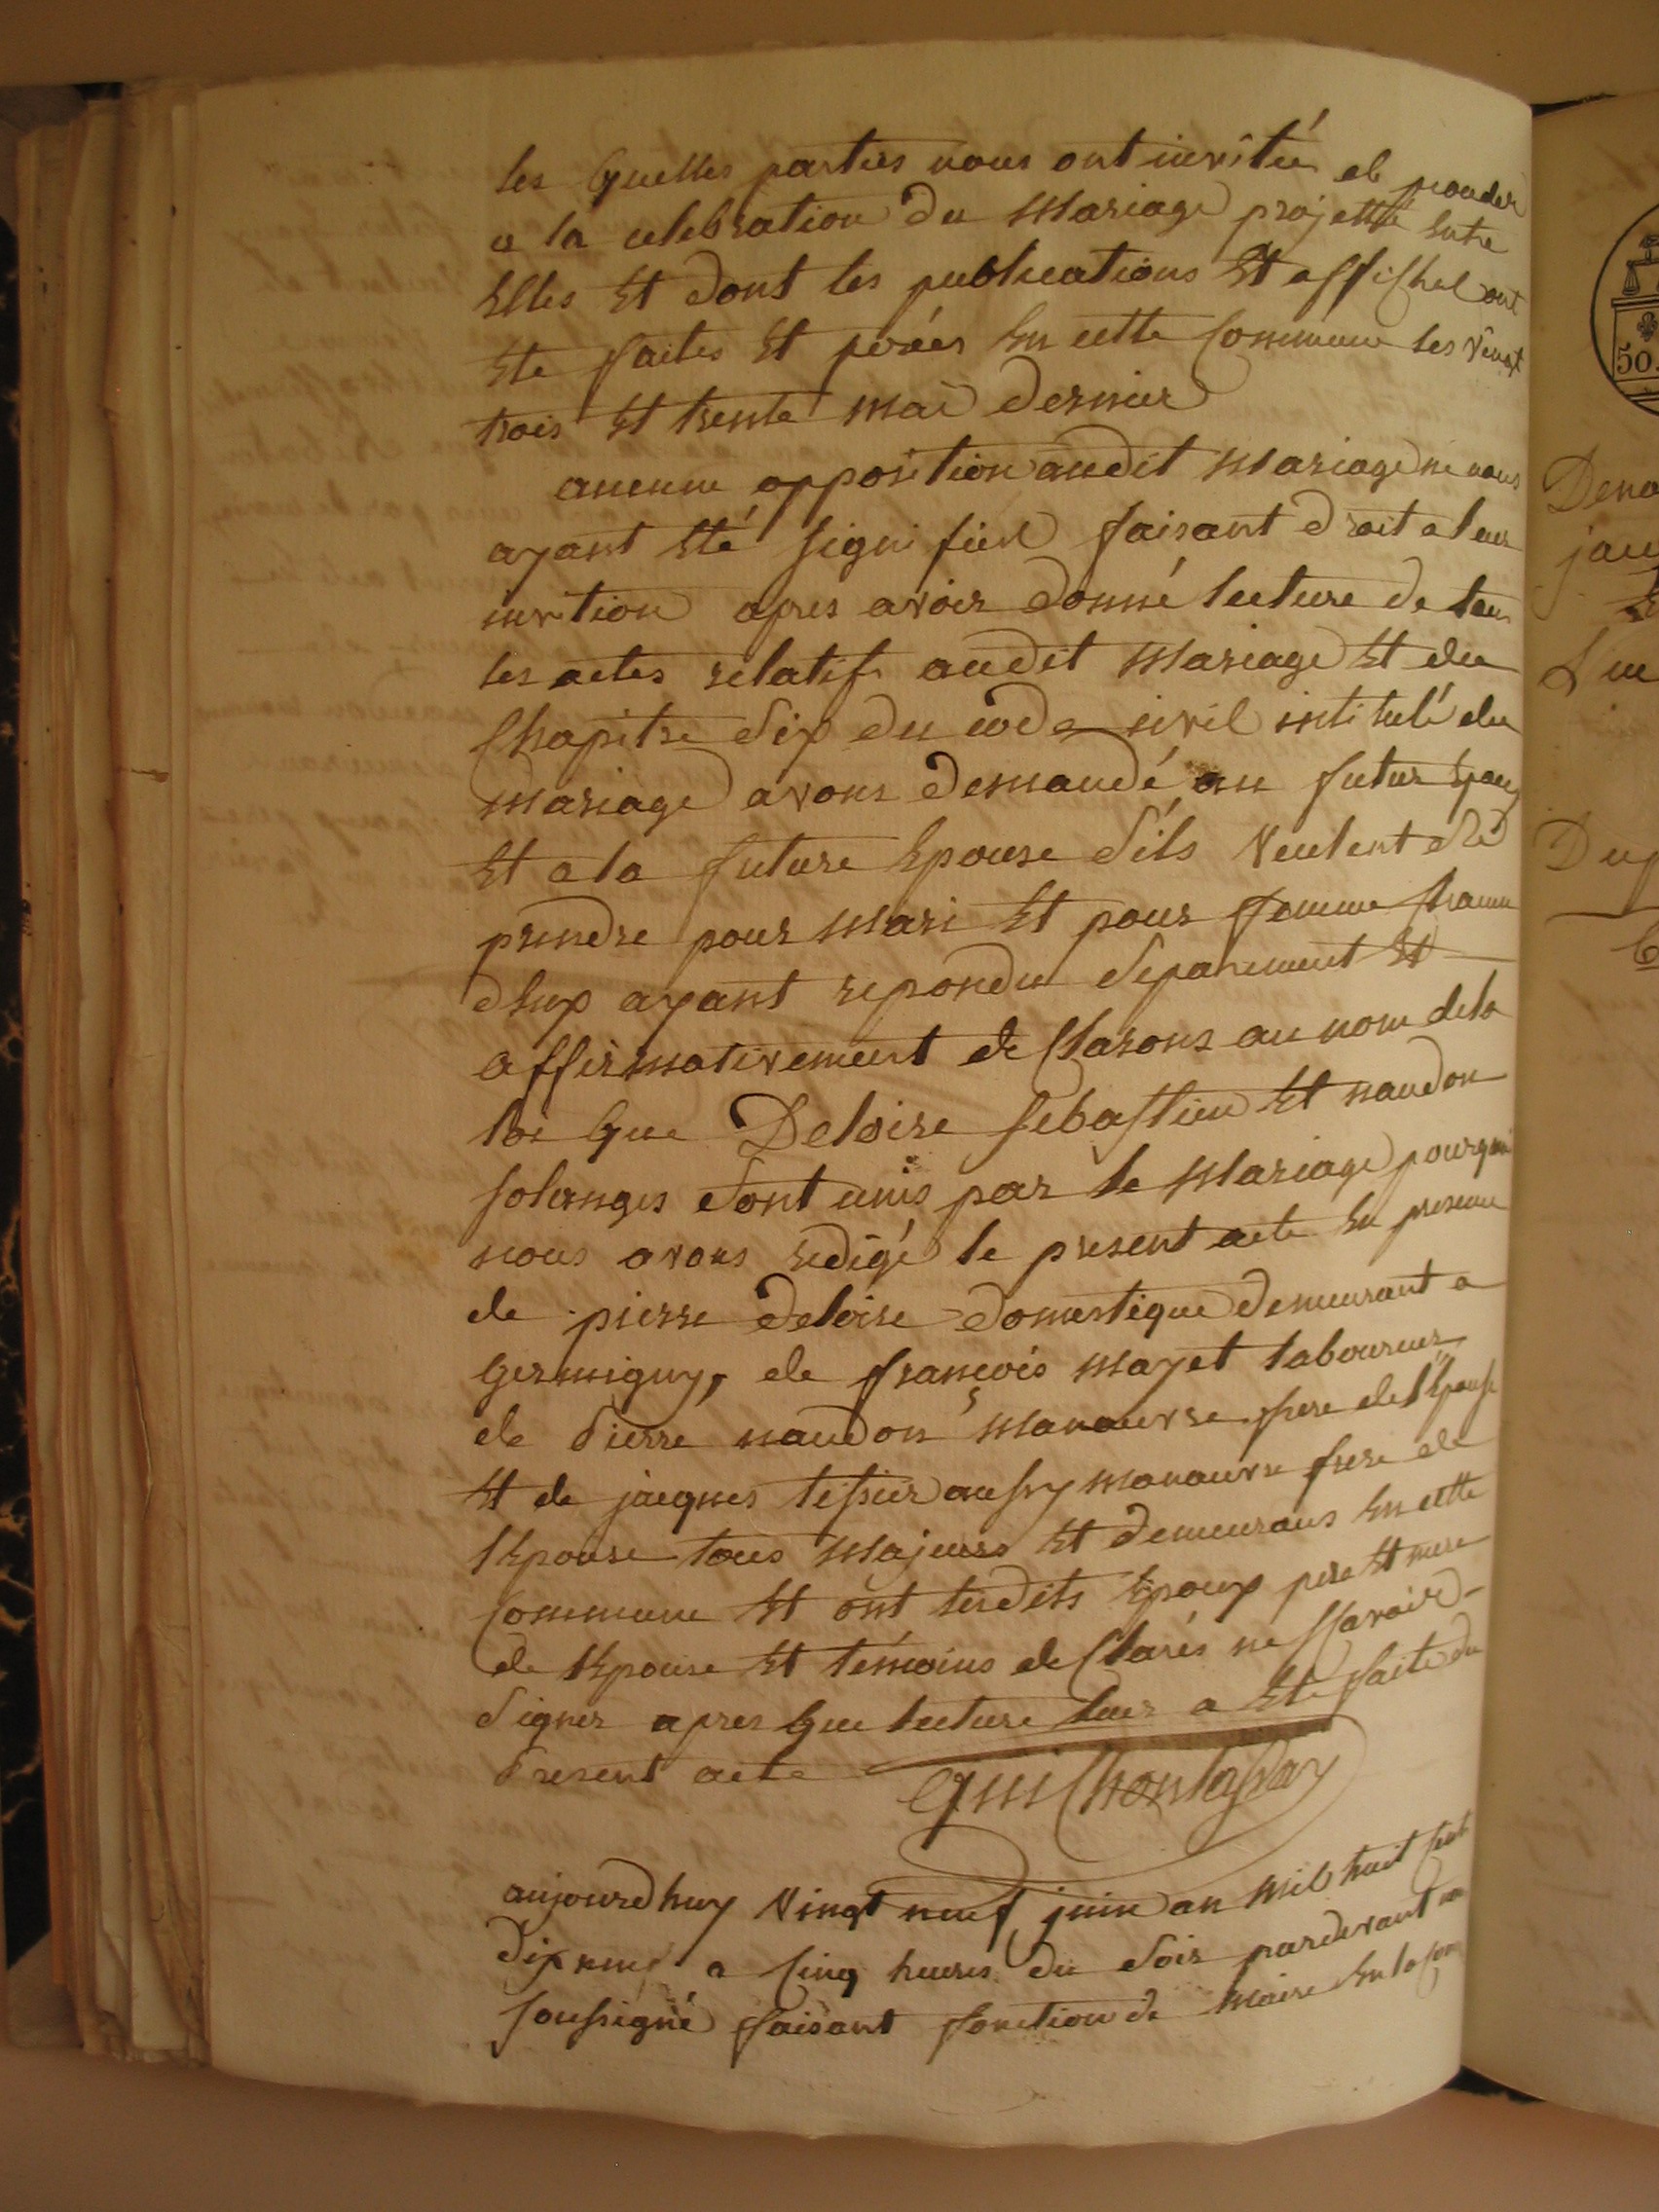 les quelles parties nous ont invité de proceder
a la celebration du mariage projetté entre
Elles Et dont les publications Et affiches ont
Eté faites Et posées En cette Commune les vingt
trois Et trente mai dernier
aucune opposition audit mariage ne nous
ayant Eté signifiée faisant droit a leur
invition apres avoir donné lecture de tous
les actes relatifs audit mariage Et du
Chapitre six du code civil intitulé du
mariage avons demandé au futur Epoux
Et a la future Epouse s'ils veulent se
prendre pour mari Et pour femme Chacun
d'eux ayant repondu separement Et
affirmativement declarons au nom de la
loi que Deloire sebastien Et naudon
solanges sont unis par le mariage pourquoi
nous avons redigé le present acte En presence
de pierre deloire domestique demeurant a
germigny, de françois mayet laboureur
de Pierre naudon manœuvre frere de l'Epouse
Et de jacques tessier aussy manœuvre frere de
l'Epouse tous majeurs Et demeurans En cette
Commune Et ont lesdits Epoux pere Et mere
de l'Epouse Et témoins declarés ne scavoir
signer apres que lecture leur a Eté faite du
Present acte
aujourdhuy vingt neuf juin an mil huit cent
dix neuf a Cinq heures du soir pardevant nous
soussigné faisant fonction de maire En la Com
50.
Deno
jau
Dup